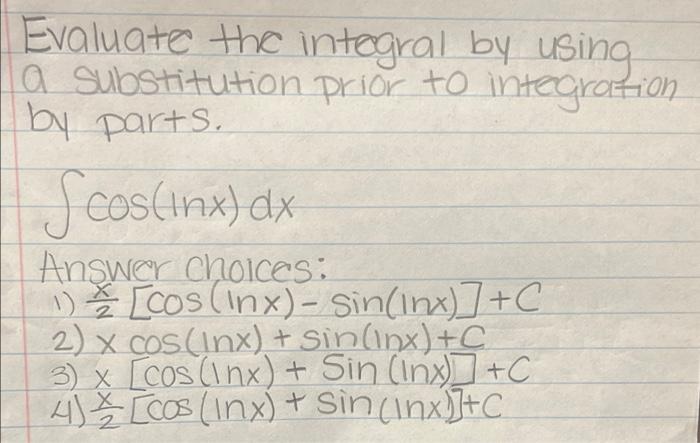 Evaluate the integral by using
a substitution prior to integration
by parts.
∫ cos(lnx) dx
Answer choices:
1) x/2 [cos(lnx) - sin(lnx)] + C
2) x cos(lnx) + sin(lnx) + C
3) x [cos(lnx) + Sin(lnx)] + C
4) x/2 [cos(lnx) + sin(lnx)] + C